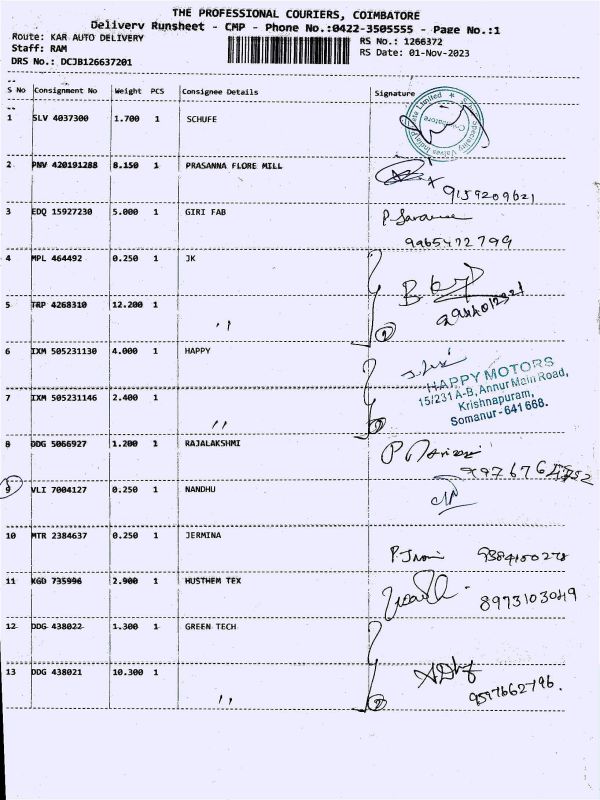 THE PROFESSIONAL COURIERS, COIMBATORE
Delivery Runsheet - CMP - Phone No.:0422-3505555 - Page No.:1
Route: KAR AUTO DELIVERY
RS No.: 1266372
Staff: RAM
RS Date: 01-Nov-2023
DRS No.: DCJB126637201
S No Consignment No Weight PCS Consignee Details Signature
1 SLV 4037300 1.700 1 SCHUFE
2 PNV 420191288 8.150 1 PRASANNA FLORE MILL
9159209621
3 EDQ 15927230 5.000 1 GIRI FAB
9965472799
4 MPL 464492 0.250 1 JK
5 TRP 4268310 12.200 1 ,,
2
6 IXM 505231130 4.000 1 HAPPY
HAPPY MOTORS
15/231 A-B, Annur Main Road,
Krishnapuram,
Somanur - 641 668.
7 IXM 505231146 2.400 1 ,,
8 DDG 5066927 1.200 1 RAJALAKSHMI
9 VLI 7004127 0.250 1 NANDHU
10 MTR 2384637 0.250 1 JERMINA
9384100278
11 KGD 735996 2.900 1 HUSTHEM TEX
8973103049
12 DDG 438022 1.300 1 GREEN TECH
13 DDG 438021 10.300 1 ,,
2
9597662796.